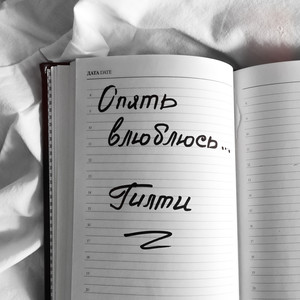 ДАТА / DATE
Опять
влюблюсь...
Гилти